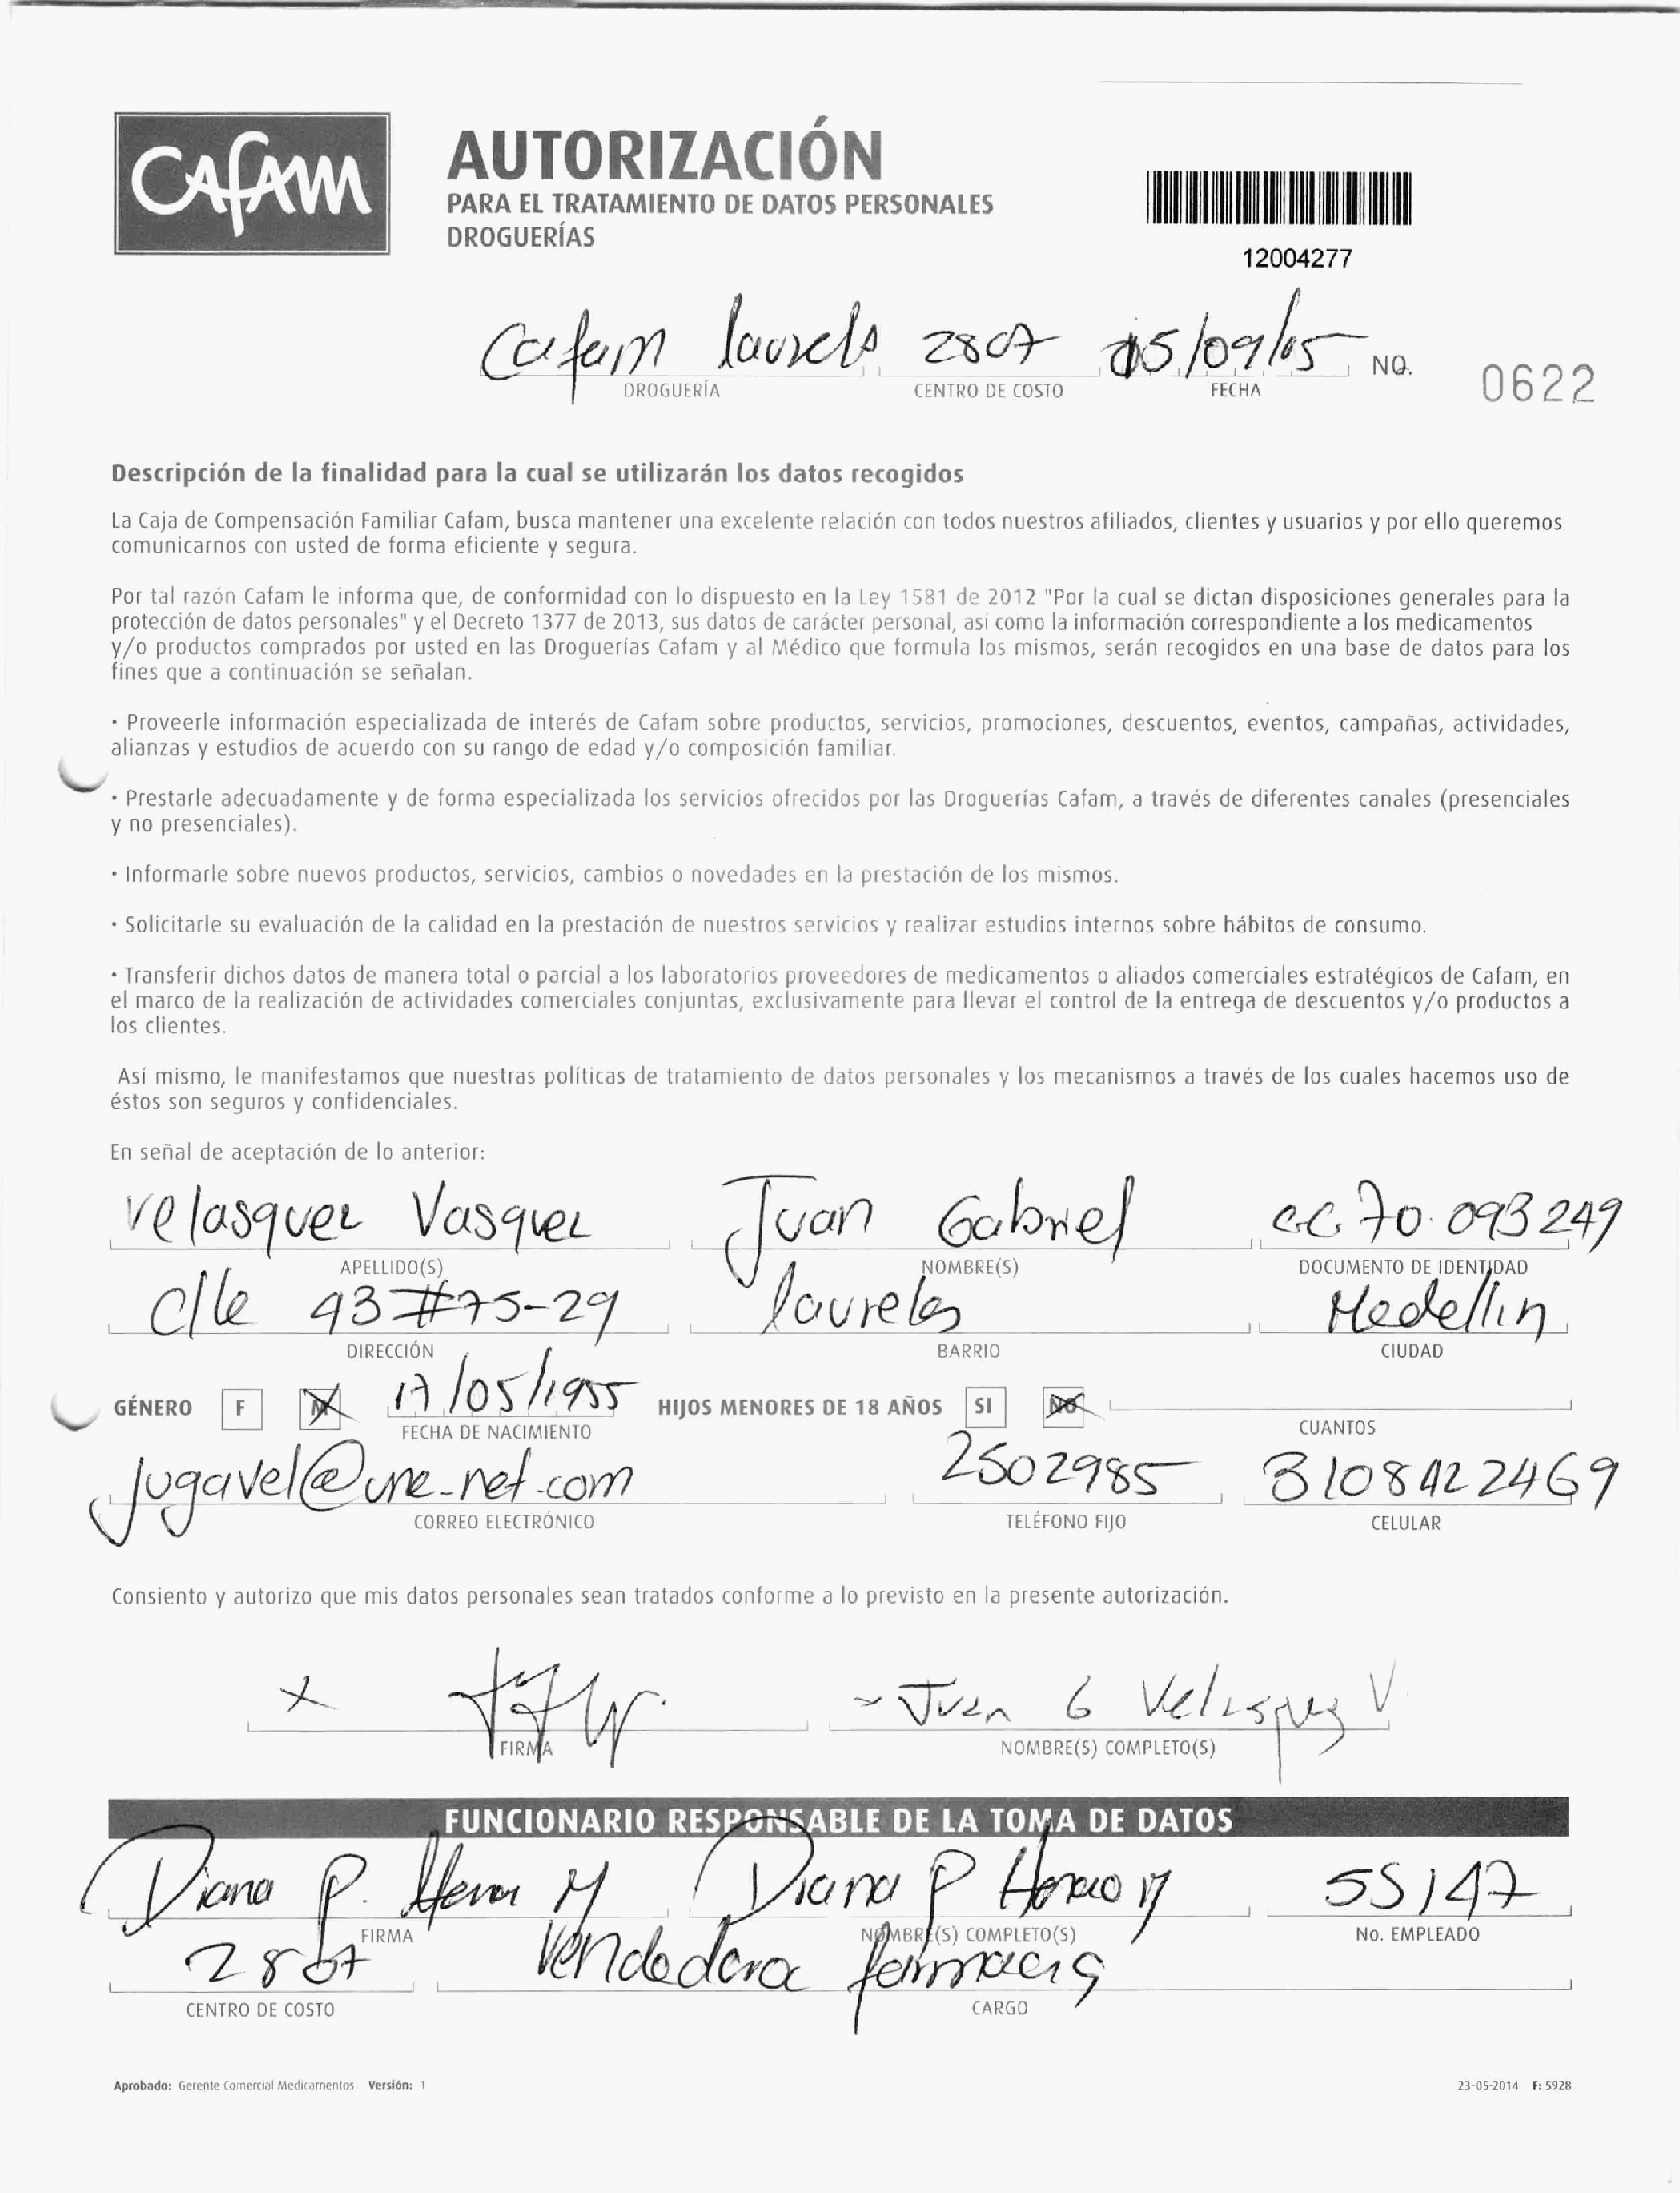 CAFAM
AUTORIZACIÓN
PARA EL TRATAMIENTO DE DATOS PERSONALES
DROGUERÍAS
12004277
Cafam laurels 2807 05/09/15 NO. 0622
DROGUERÍA CENTRO DE COSTO FECHA
Descripción de la finalidad para la cual se utilizarán los datos recogidos
La Caja de Compensación Familiar Cafam, busca mantener una excelente relación con todos nuestros afiliados, clientes y usuarios y por ello queremos
comunicarnos con usted de forma eficiente y segura.
Por tal razón Cafam le informa que, de conformidad con lo dispuesto en la Ley 1581 de 2012 "Por la cual se dictan disposiciones generales para la
protección de datos personales" y el Decreto 1377 de 2013, sus datos de carácter personal, así como la información correspondiente a los medicamentos
y/o productos comprados por usted en las Droguerías Cafam y al Médico que formula los mismos, serán recogidos en una base de datos para los
fines que a continuación se señalan.
• Proveerle información especializada de interés de Cafam sobre productos, servicios, promociones, descuentos, eventos, campañas, actividades,
alianzas y estudios de acuerdo con su rango de edad y/o composición familiar.
• Prestarle adecuadamente y de forma especializada los servicios ofrecidos por las Droguerías Cafam, a través de diferentes canales (presenciales
y no presenciales).
• Informarle sobre nuevos productos, servicios, cambios o novedades en la prestación de los mismos.
• Solicitarle su evaluación de la calidad en la prestación de nuestros servicios y realizar estudios internos sobre hábitos de consumo.
• Transferir dichos datos de manera total o parcial a los laboratorios proveedores de medicamentos o aliados comerciales estratégicos de Cafam, en
el marco de la realización de actividades comerciales conjuntas, exclusivamente para llevar el control de la entrega de descuentos y/o productos a
los clientes.
Así mismo, le manifestamos que nuestras políticas de tratamiento de datos personales y los mecanismos a través de los cuales hacemos uso de
éstos son seguros y confidenciales.
En señal de aceptación de lo anterior:
Velasquez Vasquez Juan Gabriel cc 70.093249
APELLIDO(S) NOMBRE(S) DOCUMENTO DE IDENTIDAD
clle 43 #75-29 laureles Medellin
DIRECCIÓN BARRIO CIUDAD
GÉNERO F M 17/05/1955 HIJOS MENORES DE 18 AÑOS SI NO
FECHA DE NACIMIENTO CUANTOS
Jugavel@une-net.com 2502985 3108422469
CORREO ELECTRÓNICO TELÉFONO FIJO CELULAR
Consiento y autorizo que mis datos personales sean tratados conforme a lo previsto en la presente autorización.
x - Juan G Velasquez V
FIRMA NOMBRE(S) COMPLETO(S)
FUNCIONARIO RESPONSABLE DE LA TOMA DE DATOS
Diana P. M Diana P 55147
FIRMA NOMBRE(S) COMPLETO(S) No. EMPLEADO
2807 Vendedora farmacia
CENTRO DE COSTO CARGO
Aprobado: Gerente Comercial Medicamentos Versión: 1 23-05-2014 F: 5928